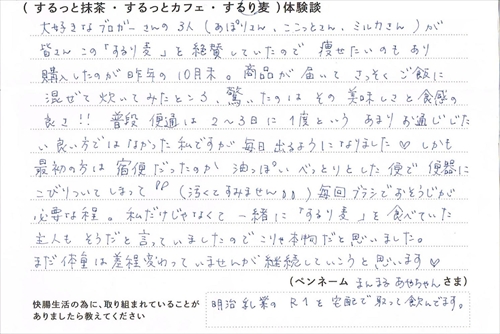 ( するっと抹茶・するっとカフェ・するり麦 ) 体験談
大好きなブロガーさんの3人(あぽりさん、ここっとさん、ミルカさん)が
皆さんこの「するり麦」を絶賛していたので 痩せたいのもあり
購入したのが昨年の10月末。商品が届いて さっそく ご飯に
混ぜて 炊いてみたところ、驚いたのは その 美味しさと食感の
良さ!! 普段 便通は 2〜3日に 1度という あまり お通じじたい
い良い方ではなかった私ですが毎日出るようになりました♡ しかも
最初の方は 宿便だったのか 油っぽい べっとりとした便で 便器に
こびりついてしまって (汚くてすみません) 毎回ブラシでおそうじが
必要な程。私だけじゃなくて 一緒に「するり麦」を食べていた
主人も そうだと言っていましたのでこりゃ本物だと思いました。
まだ体重は差程変わっていませんが継続していこうと思います♡
(ペンネーム まんまるあやちゃん さま)
快腸生活の為に、取り組まれていることが
ありましたら教えてください
明治乳業の R1を宅配で取って飲んでます。